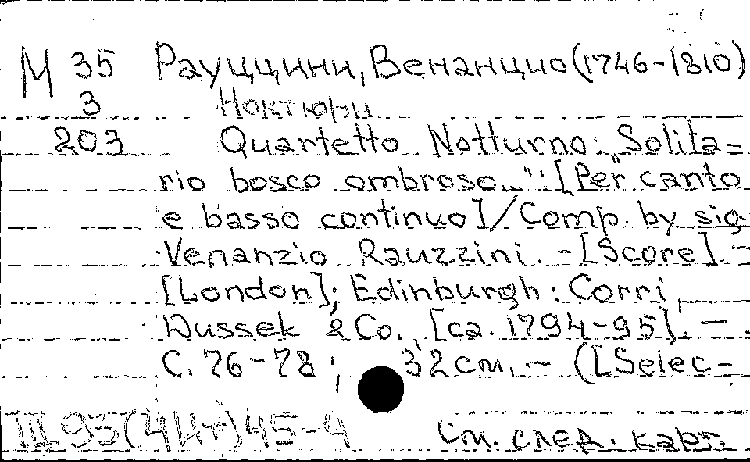 М 35 Рауццини, Венанцио (1746-1810)
3 Ноктюрн
203 Quartetto Notturno: "Solita=
rio bosco ombroso...": [Per canto
e basso continuo] / Comp. by sig.
Venanzio Rauzzini. - [Score] -
[London]; Edinburgh: Corri,
Dussek & Co., [ca. 1794-95]. -
С. 76-78; 32 см. - ([Selec=
III 95(4Ит)45-4 См. след. карт.